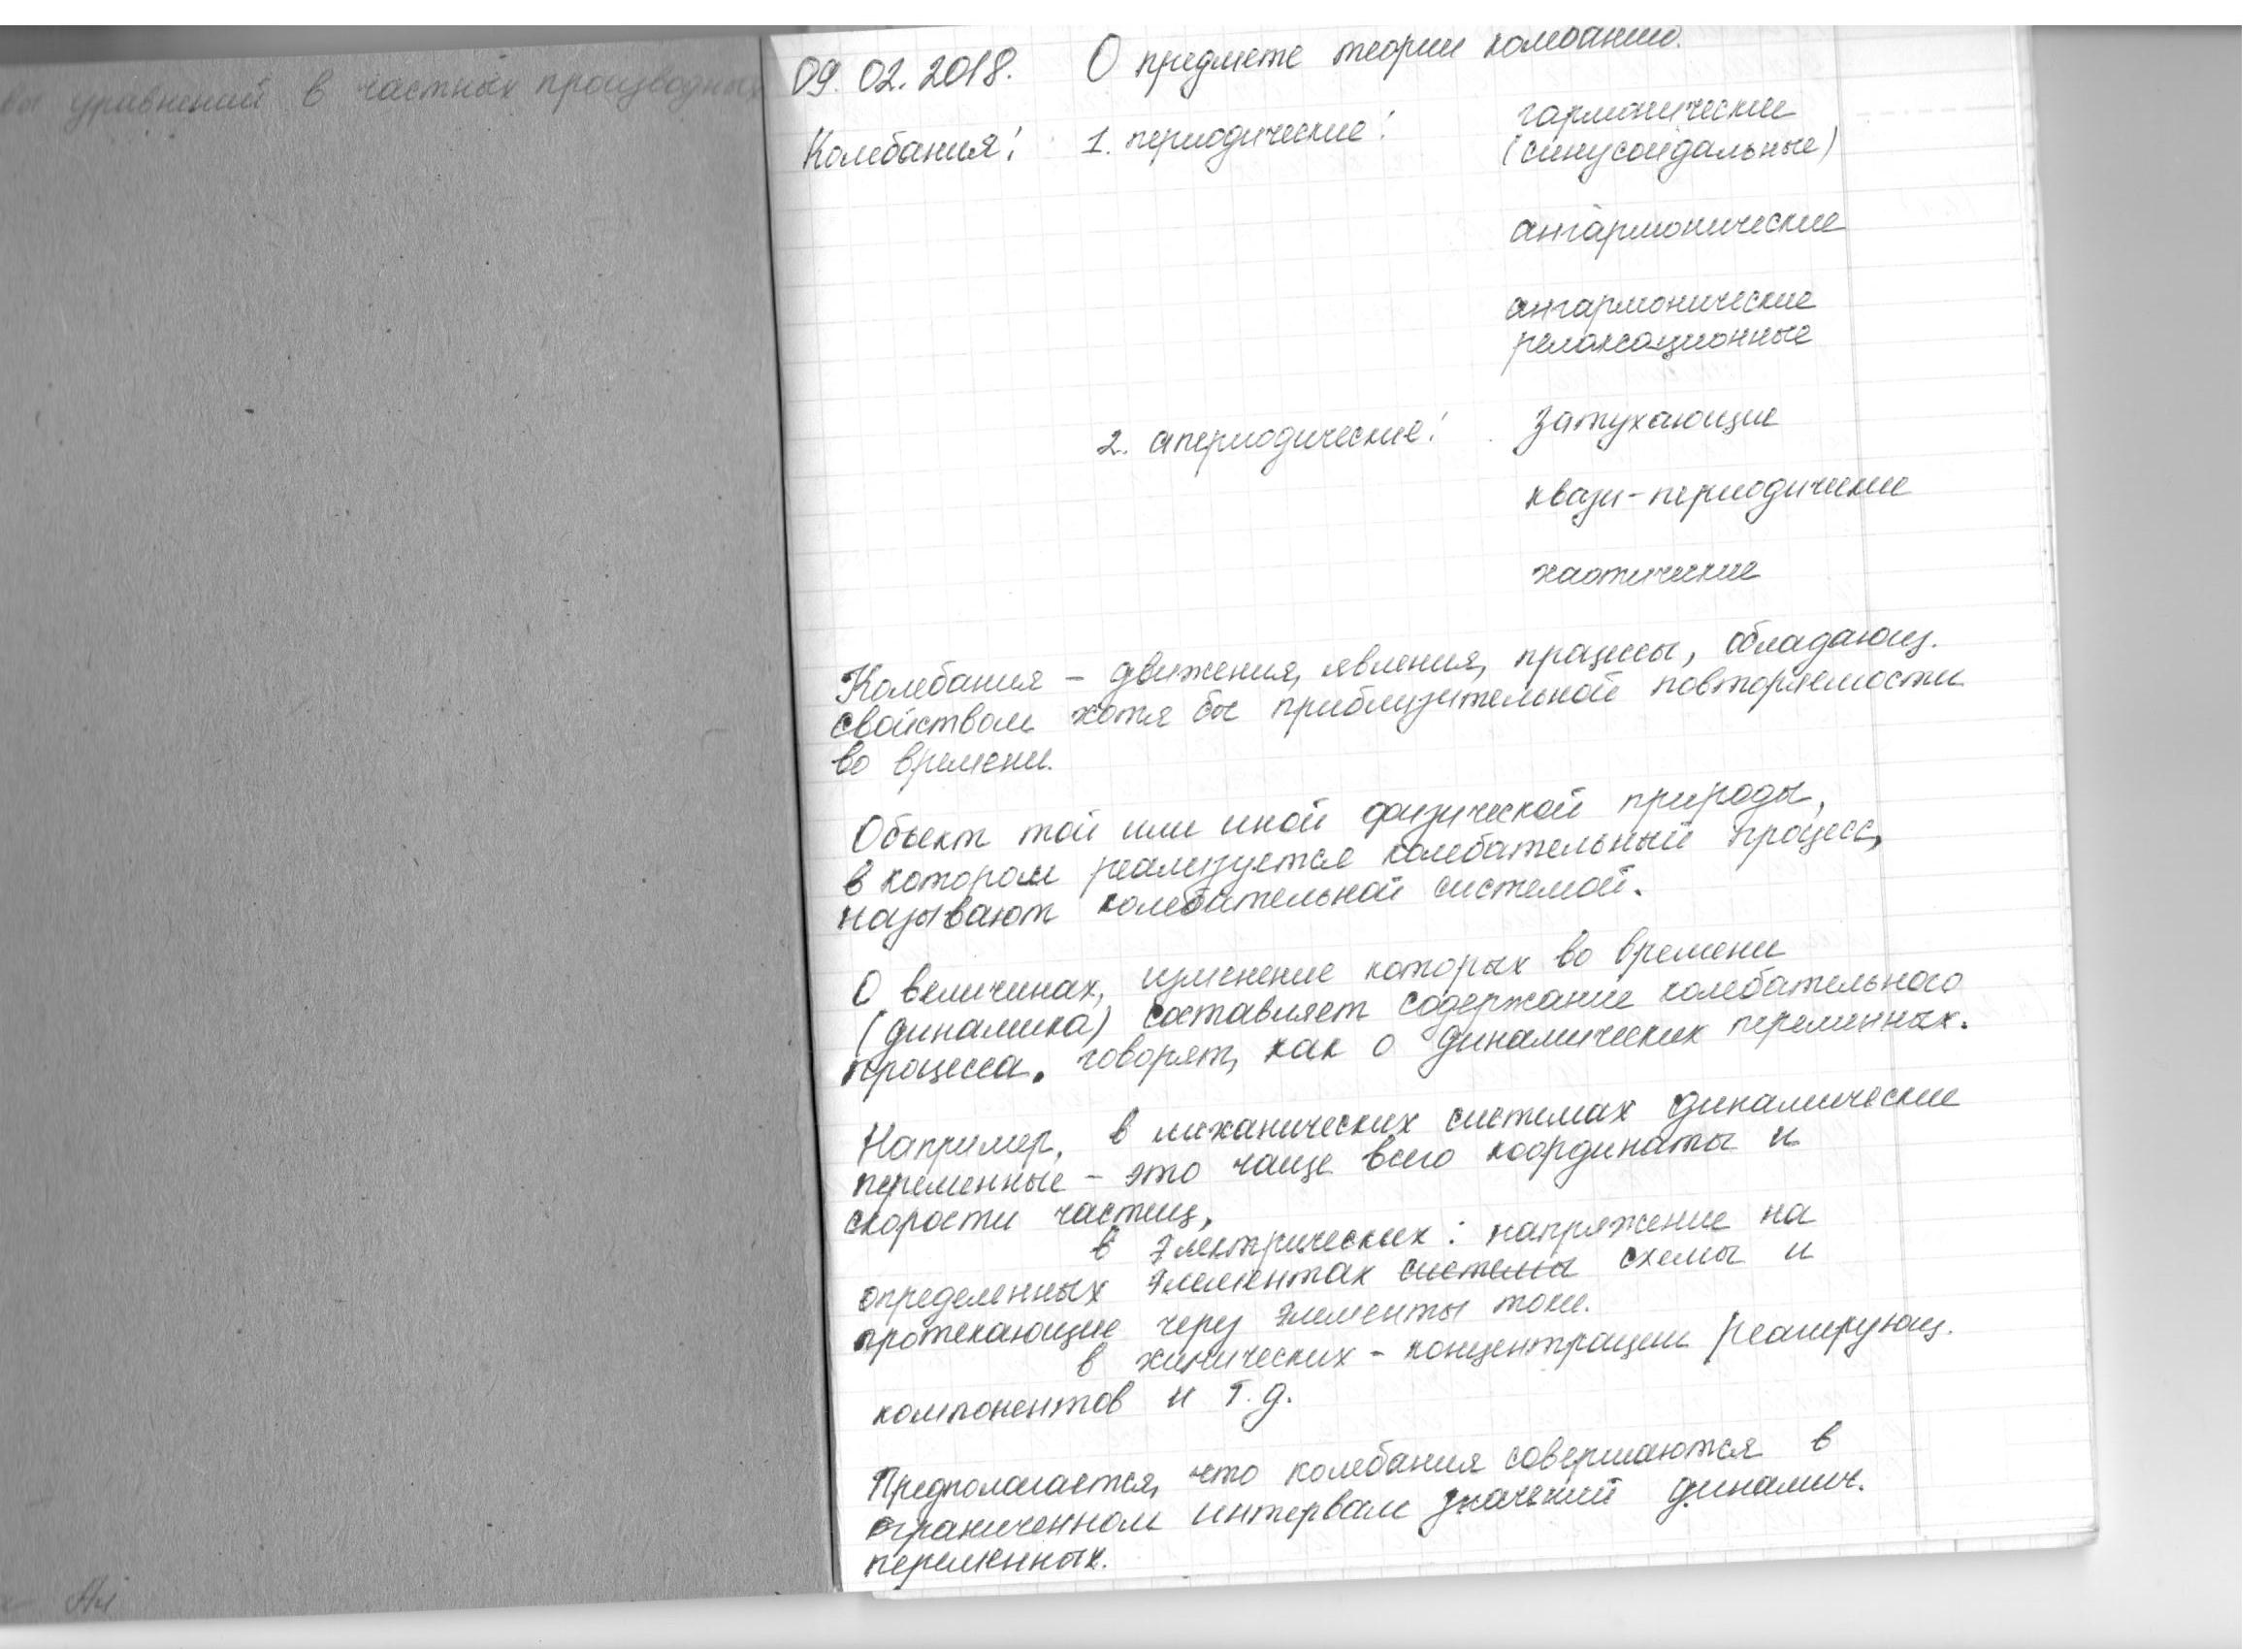 вы уравнений в частных производных
09.02.2018. О предмете теории колебаний.
Колебания: 1. периодические: гармонические
(синусоидальные)
ангармонические
ангармонические
релаксационные
2. апериодические: затухающие
квази-периодические
хаотические
Колебания – движения, явления, процессы, обладающ.
свойством хотя бы приблизительной повторяемости
во времени.
Объект той или иной физической природы,
в котором реализуется колебательный процесс,
называют колебательной системой.
О величинах, изменение которых во времени
(динамика) составляет содержание колебательного
процесса. говорят, как о динамических переменных.
Например, в механических системах динамические
переменные – это чаще всего координаты и
скорости частиц,
в электрических: напряжение на
определенных элементах системы схемы и
протекающие через элементы токи.
в химических – концентрации реагирующ.
компонентов и т.д.
Предполагается, что колебания совершаются в
ограниченном интервале значений динамич.
переменных.